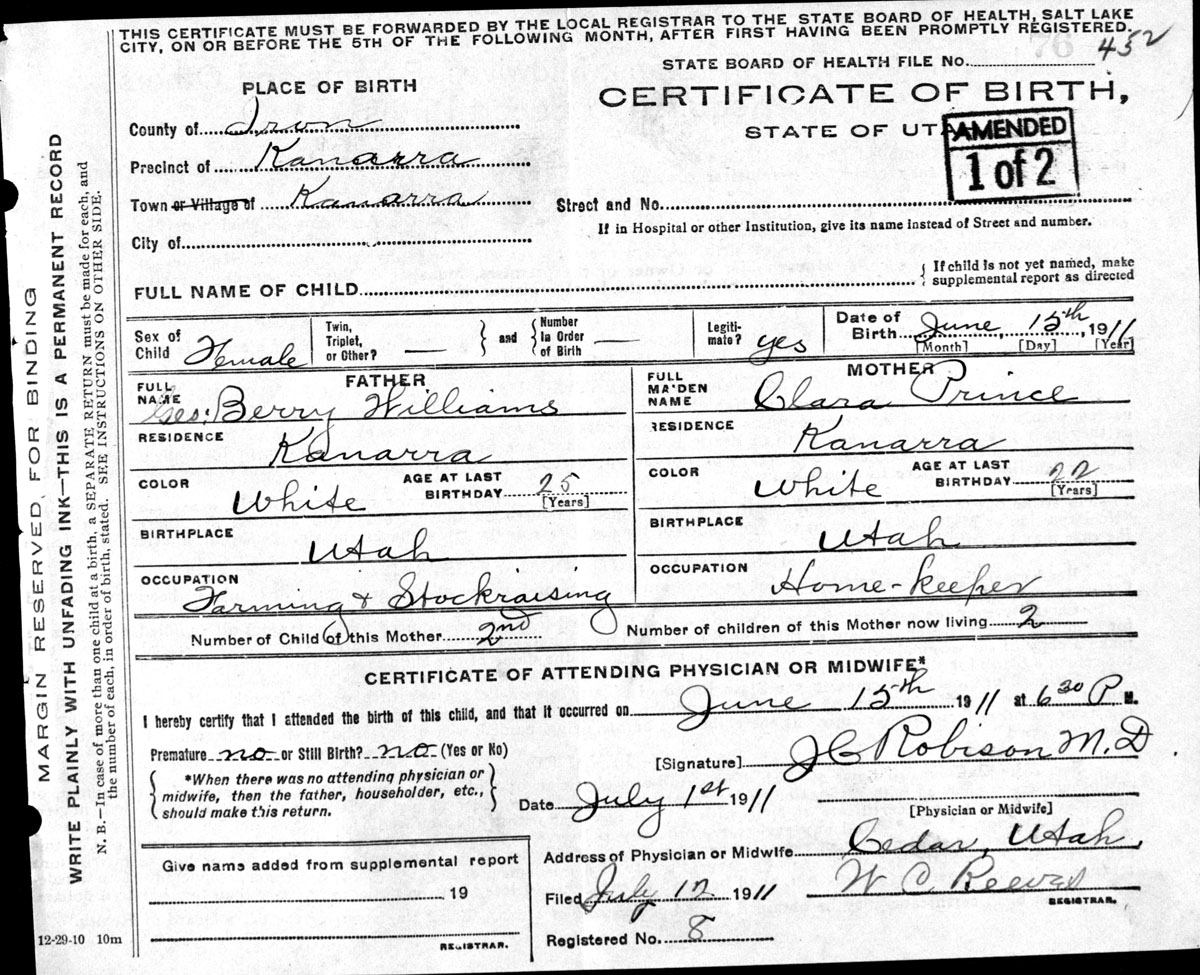 THIS CERTIFICATE MUST BE FORWARDED BY THE LOCAL REGISTRAR TO THE STATE BOARD OF HEALTH, SALT LAKE
CITY, ON OR BEFORE THE 5TH OF THE FOLLOWING MONTH, AFTER FIRST HAVING BEEN PROMPTLY REGISTERED.
76
STATE BOARD OF HEALTH FILE No. 452
PLACE OF BIRTH
CERTIFICATE OF BIRTH,
STATE OF UTAH
AMENDED
1 of 2
County of Iron
Precinct of Kanarra
Town or Village of Kanarra
Street and No.
If in Hospital or other Institution, give its name instead of Street and number.
City of
FULL NAME OF CHILD
If child is not yet named, make
supplemental report as directed
Sex of Child Female
Twin, Triplet, or Other? —
and
Number in Order of Birth —
Legitimate? yes
Date of Birth June 15th, 1911
[Month] [Day] [Year]
FATHER
FULL NAME Geo. Berry Williams
RESIDENCE Kanarra
COLOR White
AGE AT LAST BIRTHDAY 25
[Years]
BIRTHPLACE Utah
OCCUPATION Farming & Stockraising
MOTHER
FULL MAIDEN NAME Clara Prince
RESIDENCE Kanarra
COLOR White
AGE AT LAST BIRTHDAY 22
[Years]
BIRTHPLACE Utah
OCCUPATION Home-keeper
Number of Child of this Mother 2nd
Number of children of this Mother now living 2
CERTIFICATE OF ATTENDING PHYSICIAN OR MIDWIFE*
I hereby certify that I attended the birth of this child, and that it occurred on June 15th 1911 at 6 30 P M.
Premature no or Still Birth? no (Yes or No)
*When there was no attending physician or
midwife, then the father, householder, etc.,
should make this return.
[Signature] J C Robison M. D
Date July 1st 1911
[Physician or Midwife]
Give name added from supplemental report
19
REGISTRAR.
Address of Physician or Midwife Cedar, Utah,
Filed July 12 1911 W C Reeves
REGISTRAR.
Registered No. 8
12-29-10 10m
MARGIN RESERVED FOR BINDING
WRITE PLAINLY WITH UNFADING INK—THIS IS A PERMANENT RECORD
N. B.—In case of more than one child at a birth, a SEPARATE RETURN must be made for each, and
the number of each, in order of birth, stated. SEE INSTRUCTIONS ON OTHER SIDE.